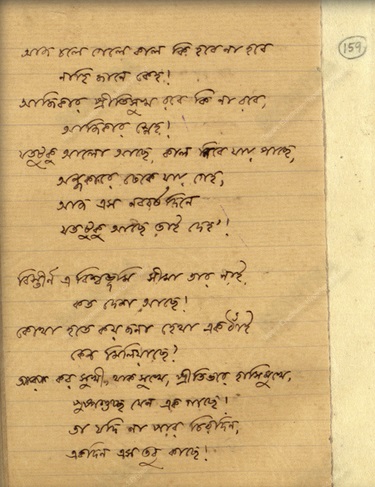 159
আজ চলে গেলে কাল কি হবে না হবে
নাহি জানে কেহ!
আজিকার প্রীতিসুখ রবে কি না রবে,
আজিকার স্নেহ!
যতটুকু আলো আছে, কাল নিবে যায় পাছে,
অন্ধকারে ঢেকে যায় গেহ,
আজ এস নববর্ষদিনে
যতটুকু আছে তাই দেহ'!
বিস্তীর্ণ এ বিশ্বভূমি সীমা তার নাই,
কত দেশ আছে!
কোথা হতে কয় জনা হেথা একঠাঁই
কেন মিলিয়াছে?
কর সুখী, থাক সুখে, প্রীতিভরে হাসিমুখে,
পুষ্পগুচ্ছ যেন এক গাছে!
তা যদি না পার চিরদিন,
একদিন এস তবু কাছে!